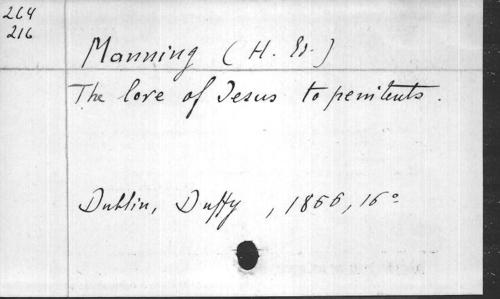 264
216
Manning (H. Ed.)
The love of Jesus to penitents.
Dublin, Duffy, 1866, 16°